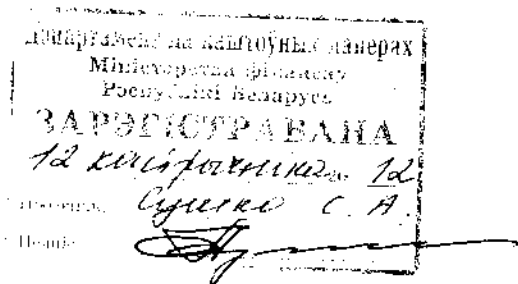 Дэпартамент па каштоўных паперах
Міністэрства фінансаў
Рэспублікі Беларусь
ЗАРЭГІСТРАВАНА
12 кастрычніка 12
С. А.